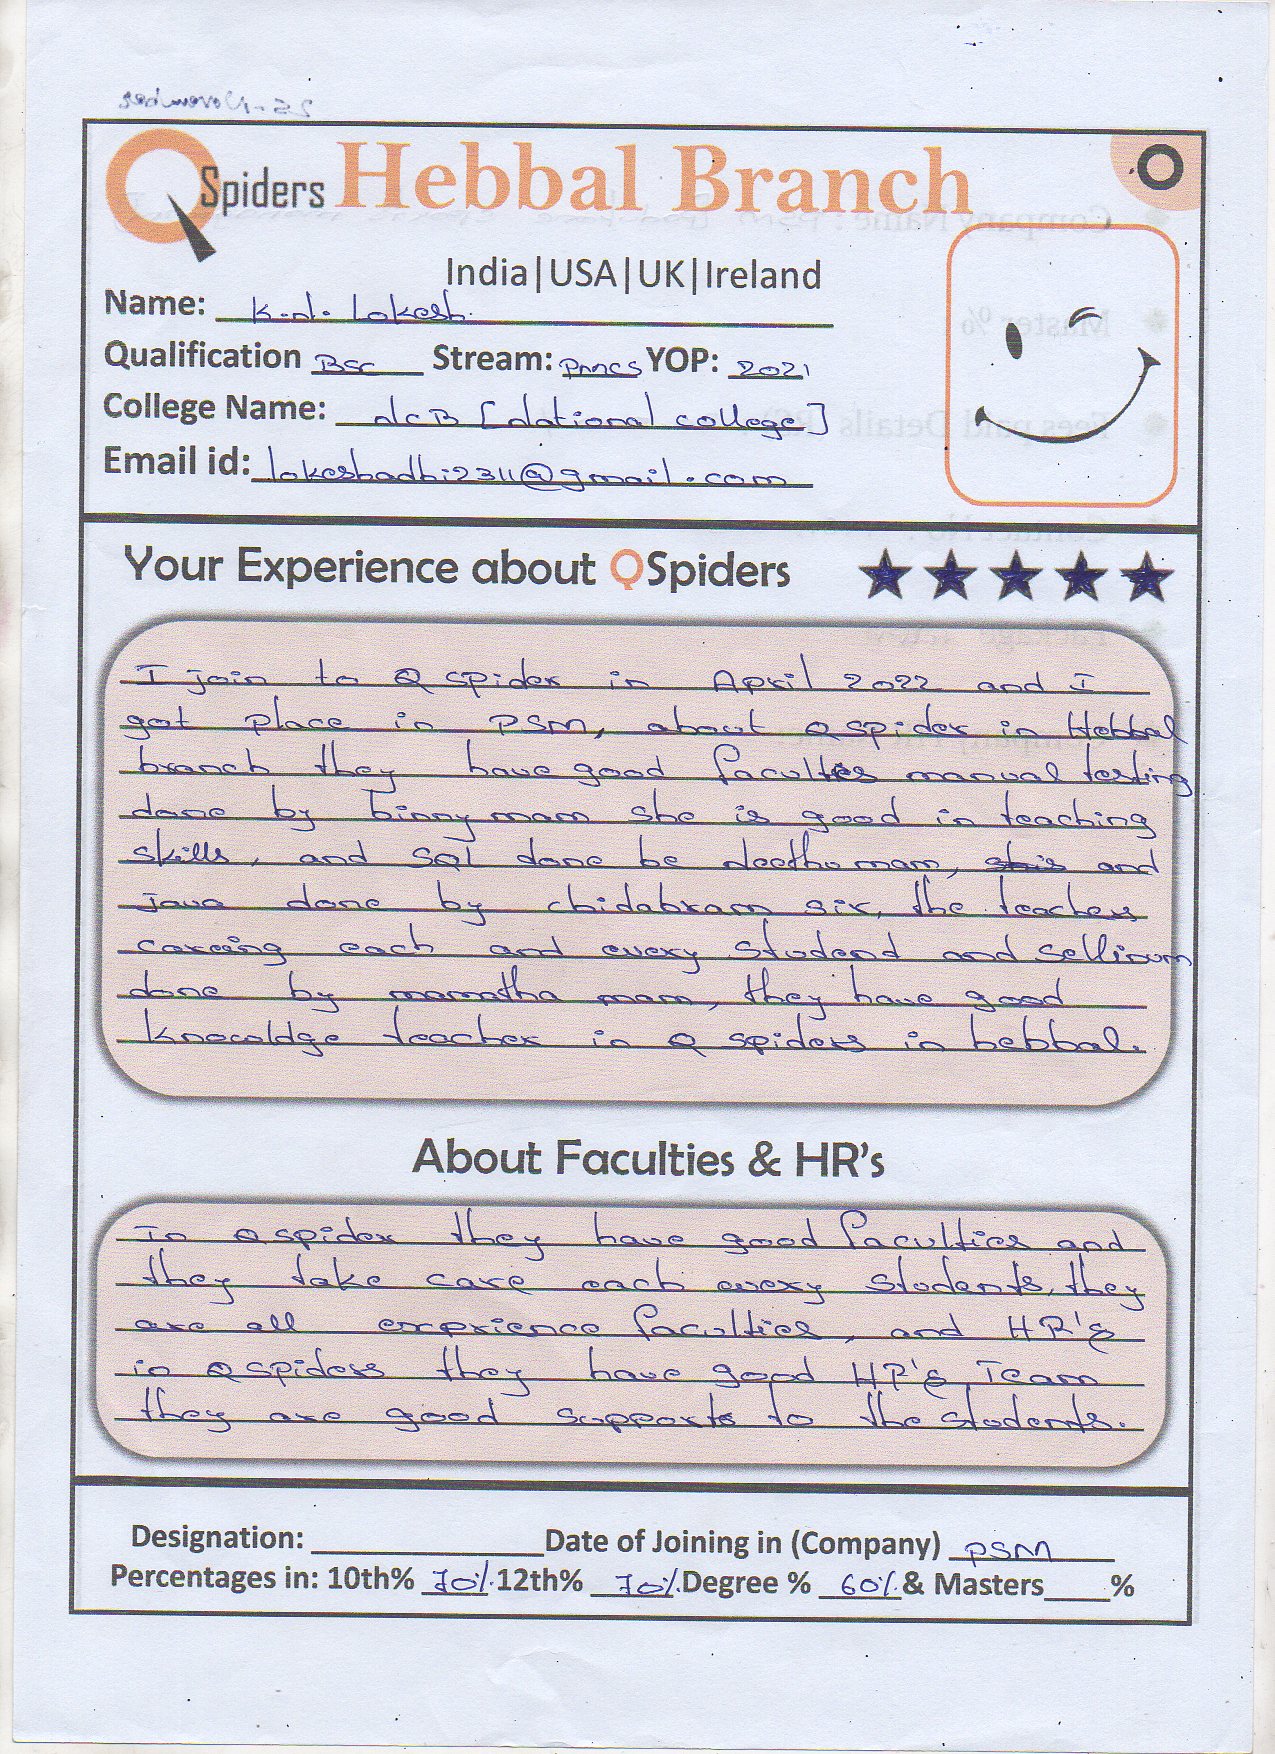 25-November
QSpiders Hebbal Branch
India|USA|UK|Ireland
Name: K.N. Lokesh.
Qualification BSC Stream: PMCS YOP: 2021
College Name: NCB [National college]
Email id: lokeshadhi2311@gmail.com
Your Experience about QSpiders
I join to Q spider in April 2022 and I
got place in PSM, about Qspider in Hebbal
branch they have good faculties manual testing
done by Binny mam she is good in teaching
skills, and SQL done be Neetha mam, and
Java done by chidabram sir, the teachers
careing each and every studend and sellinum
done by mamatha mam, they have good
knowoldge teacher in Q spiders in hebbal.
About Faculties & HR's
In Qspider they have good faculties and
they take care each every students, they
are all exprience faculties, and HR's
in Qspiders they have good HR's Team
they are good supports to the students.
Designation: Date of Joining in (Company) PSM
Percentages in: 10th% 70%. 12th% 70%. Degree % 60%. & Masters %